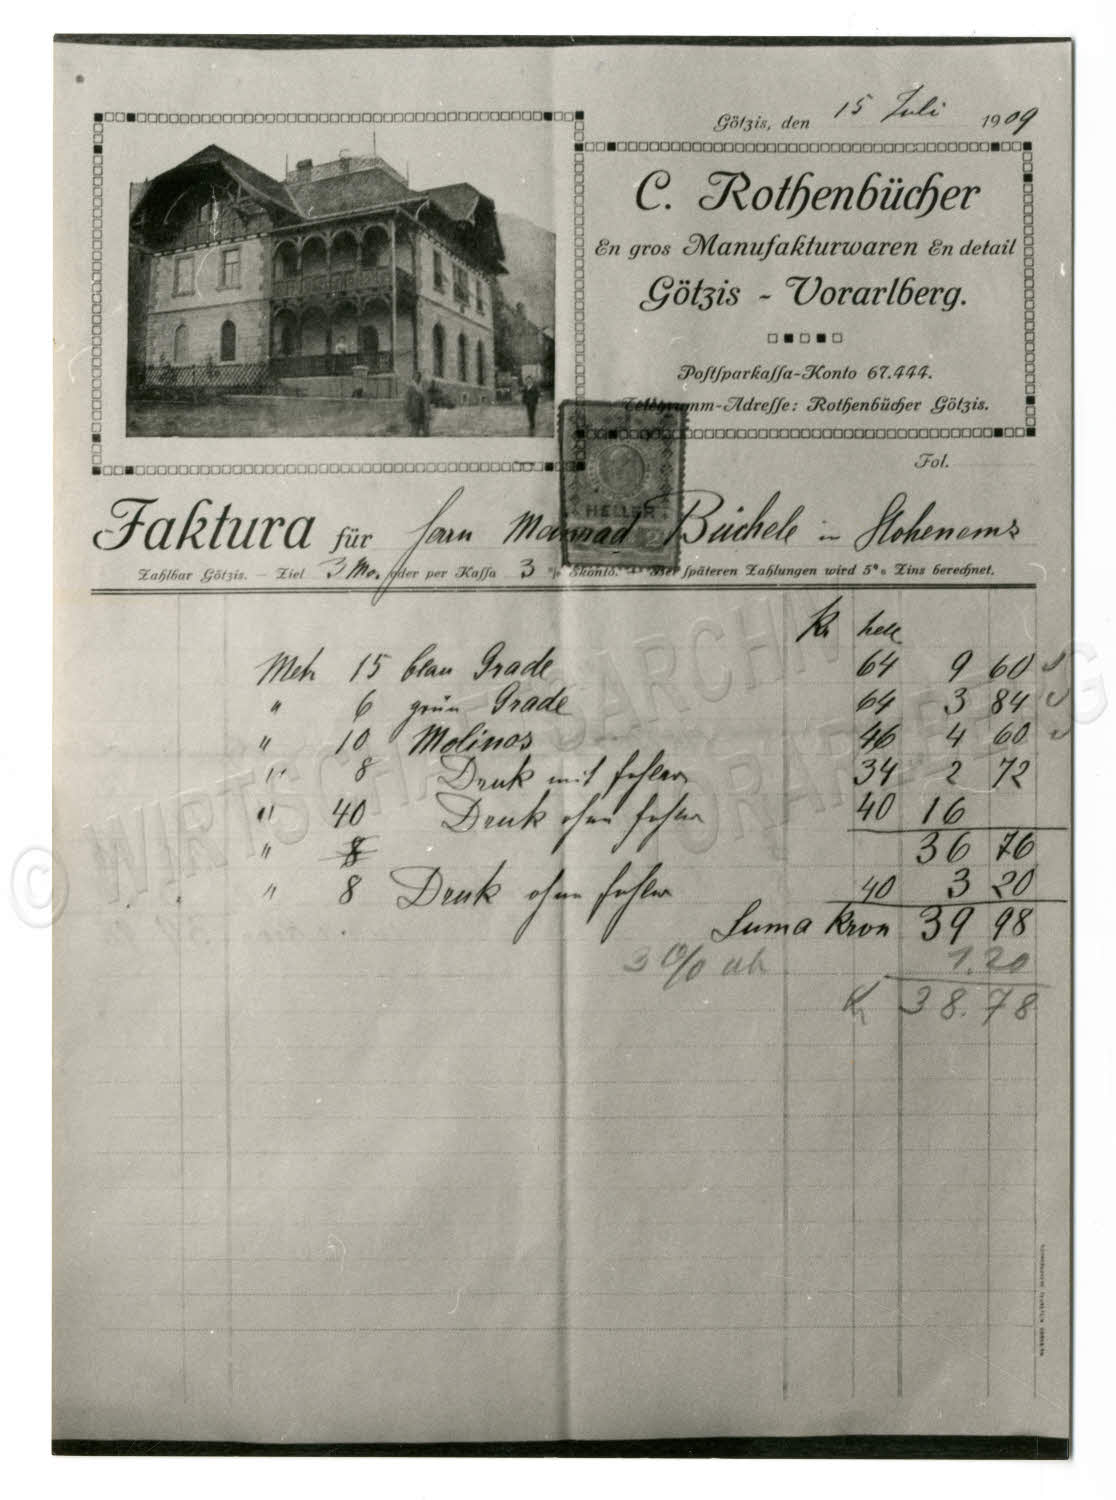 Götzis, den 15 Juli 1909
C. Rothenbücher
En gros Manufakturwaren En detail
Götzis - Vorarlberg.
Postsparkassa-Konto 67.444.
Telegramm-Adresse: Rothenbücher Götzis.
Fol.
HELLER
Faktura für Herrn Meinrad Büchele in Hohenems
Zahlbar Götzis. — Ziel 3 Mo. oder per Kassa 3 % Skonto. Bei späteren Zahlungen wird 5% Zins berechnet.
Kr hell
Metr 15 blau Grade 64 9 60
" 6 grün Grade 64 3 84
" 10 Molinos 46 4 60
" 8 Druk mit fehler 34 2 72
" 40 Druk ohne fehler 40 16
" 8 36 76
" 8 Druk ohne fehler 40 3 20
Suma Kron 39 98
3 % ab 1.20
Kr 38.78
© WIRTSCHAFTSARCHIV VORARLBERG